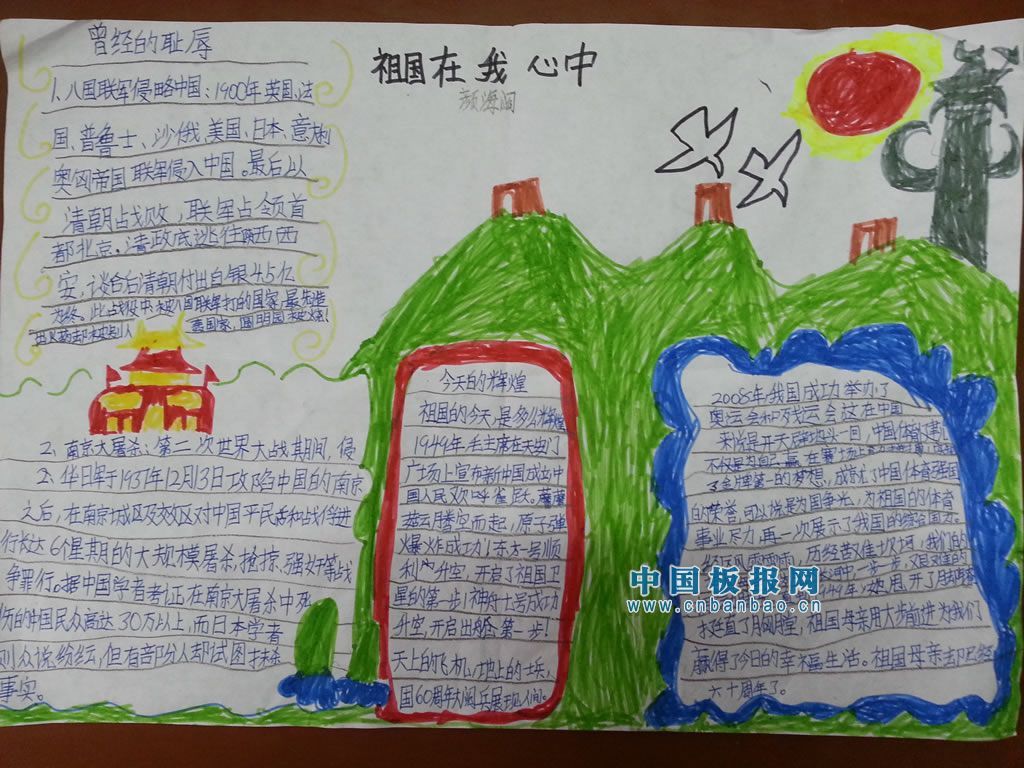 祖国在我心中
颜海阔
曾经的耻辱
1、八国联军侵略中国:1900年英国、法
国、普鲁士、沙俄、美国、日本、意大利
奥匈帝国联军侵入中国。最后以
清朝战败,联军占领首
都北京。清政府逃往陕西西
安,谈合后清朝付出白银4.5亿
为终。此战役中被八国联军打的国家,最先进
国家,圆明园被烧!
2、南京大屠杀:第二次世界大战期间,侵
华日军于1937年12月13日攻陷中国的南京
之后,在南京城区及郊区对中国平民和战俘进
行长达6个星期的大规模屠杀、抢掠、强奸等战
争罪行。据中国学者考证在南京大屠杀中死
伤的中国民众高达30万以上,而日本学者
则众说纷纭,但有部分人却试图抹杀
事实。
今天的辉煌
祖国的今天是多么辉煌
1949年毛主席在天安门
广场上宣布新中国成立中
国人民欢呼雀跃。蘑菇
云腾空而起,原子弹
爆炸成功!东方一号顺
利升空,开启了祖国卫
星的第一步!神舟七号成功
升空,开启出舱第一步!
天上的飞机,地上的士兵,
国60周年大阅兵展现人间。
2008年,我国成功举办了
奥运会和残运会这在中国
来说是开天辟地头一回,中国体育健儿
不仅是为自己赢,在赛场上
了金牌第一的梦想,成就了中国体育强国
的荣誉,可以说是为国争光,为祖国的体育
事业尽力,再一次展示了我国的综合国力。
经历风雨,历经普佳坎坷,我们的
1949年,她甩开了
挺直了胸膛,祖国母亲用大步前进为我们
赢得了今日的幸福生活。祖国母亲却已经
六十周年了。
中国板报网
www.cnbanbao.cn